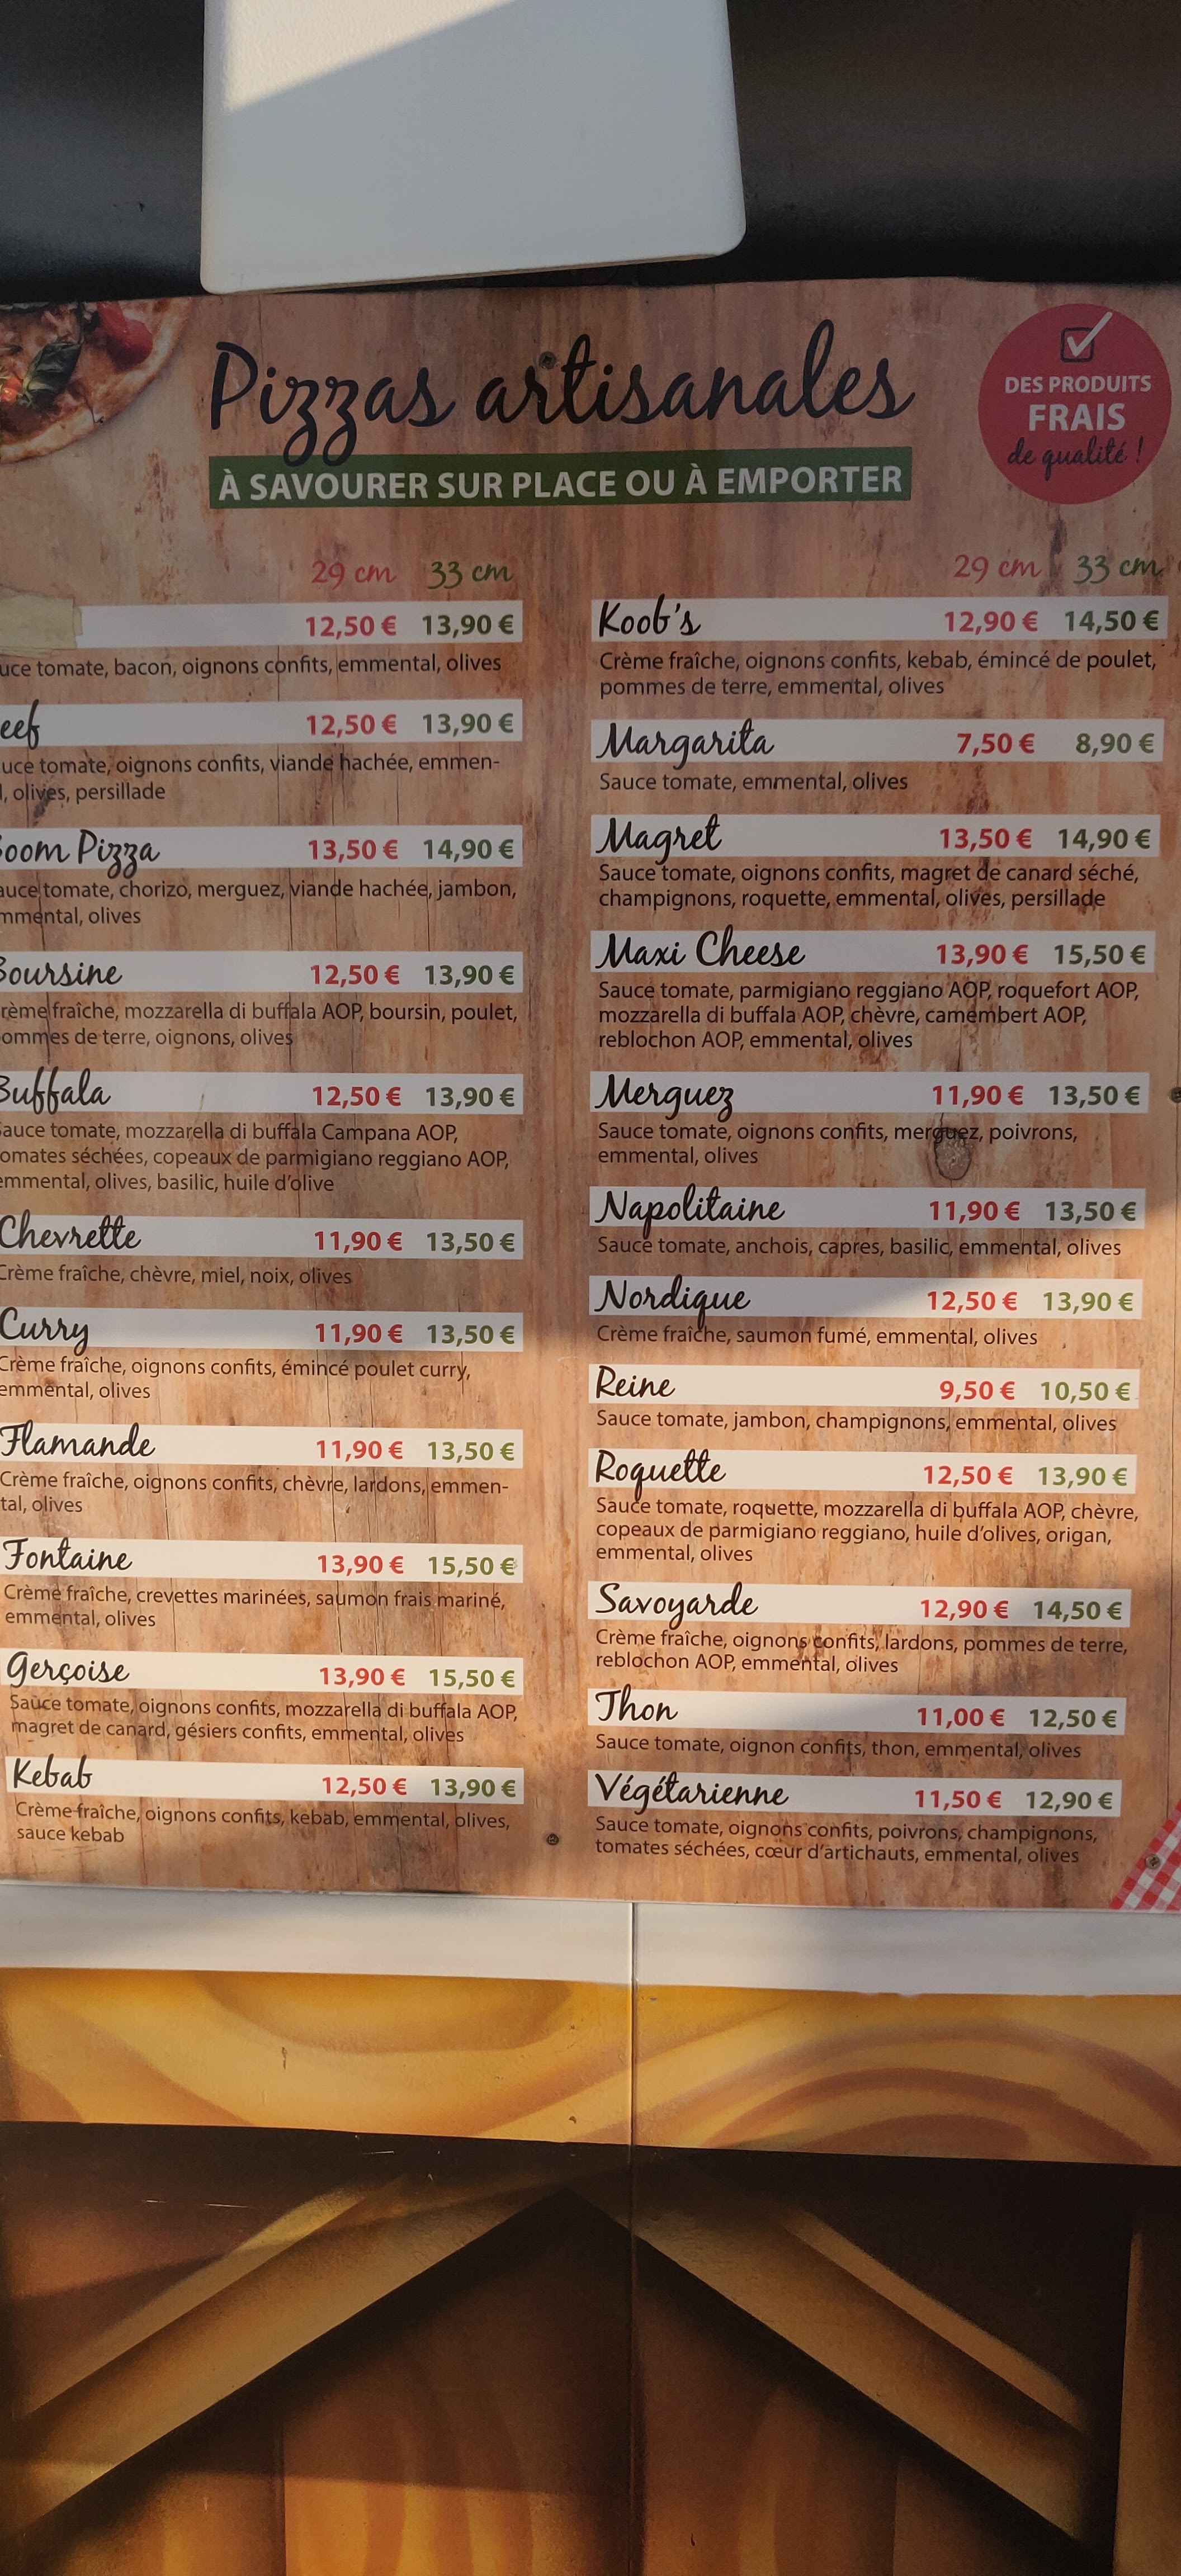 Pizzas artisanales
À SAVOURER SUR PLACE OU À EMPORTER
DES PRODUITS
FRAIS
de qualité !
29 cm 33 cm
12,50 € 13,90 €
uce tomate, bacon, oignons confits, emmental, olives
eef 12,50 € 13,90 €
uce tomate, oignons confits, viande hachée, emmen-
l, olives, persillade
oom Pizza 13,50 € 14,90 €
auce tomate, chorizo, merguez, viande hachée, jambon,
mmental, olives
Boursine 12,50 € 13,90 €
rème fraîche, mozzarella di buffala AOP, boursin, poulet,
ommes de terre, oignons, olives
Buffala 12,50 € 13,90 €
Sauce tomate, mozzarella di buffala Campana AOP,
omates séchées, copeaux de parmigiano reggiano AOP,
emmental, olives, basilic, huile d'olive
Chevrette 11,90 € 13,50 €
Crème fraîche, chèvre, miel, noix, olives
Curry 11,90 € 13,50 €
Crème fraîche, oignons confits, émincé poulet curry,
emmental, olives
Flamande 11,90 € 13,50 €
Crème fraîche, oignons confits, chèvre, lardons, emmen-
tal, olives
Fontaine 13,90 € 15,50 €
Crème fraîche, crevettes marinées, saumon frais mariné,
emmental, olives
Gerçoise 13,90 € 15,50 €
Sauce tomate, oignons confits, mozzarella di buffala AOP,
magret de canard, gésiers confits, emmental, olives
Kebab 12,50 € 13,90 €
Crème fraîche, oignons confits, kebab, emmental, olives,
sauce kebab
29 cm 33 cm
Koob's 12,90 € 14,50 €
Crème fraîche, oignons confits, kebab, émincé de poulet,
pommes de terre, emmental, olives
Margarita 7,50 € 8,90 €
Sauce tomate, emmental, olives
Magret 13,50 € 14,90 €
Sauce tomate, oignons confits, magret de canard séché,
champignons, roquette, emmental, olives, persillade
Maxi Cheese 13,90 € 15,50 €
Sauce tomate, parmigiano reggiano AOP, roquefort AOP,
mozzarella di buffala AOP, chèvre, camembert AOP,
reblochon AOP, emmental, olives
Merguez 11,90 € 13,50 €
Sauce tomate, oignons confits, merguez, poivrons,
emmental, olives
Napolitaine 11,90 € 13,50 €
Sauce tomate, anchois, capres, basilic, emmental, olives
Nordique 12,50 € 13,90 €
Crème fraîche, saumon fumé, emmental, olives
Reine 9,50 € 10,50 €
Sauce tomate, jambon, champignons, emmental, olives
Roquette 12,50 € 13,90 €
Sauce tomate, roquette, mozzarella di buffala AOP, chèvre,
copeaux de parmigiano reggiano, huile d'olives, origan,
emmental, olives
Savoyarde 12,90 € 14,50 €
Crème fraîche, oignons confits, lardons, pommes de terre,
reblochon AOP, emmental, olives
Thon 11,00 € 12,50 €
Sauce tomate, oignon confits, thon, emmental, olives
Végétarienne 11,50 € 12,90 €
Sauce tomate, oignons confits, poivrons, champignons,
tomates séchées, cœur d'artichauts, emmental, olives